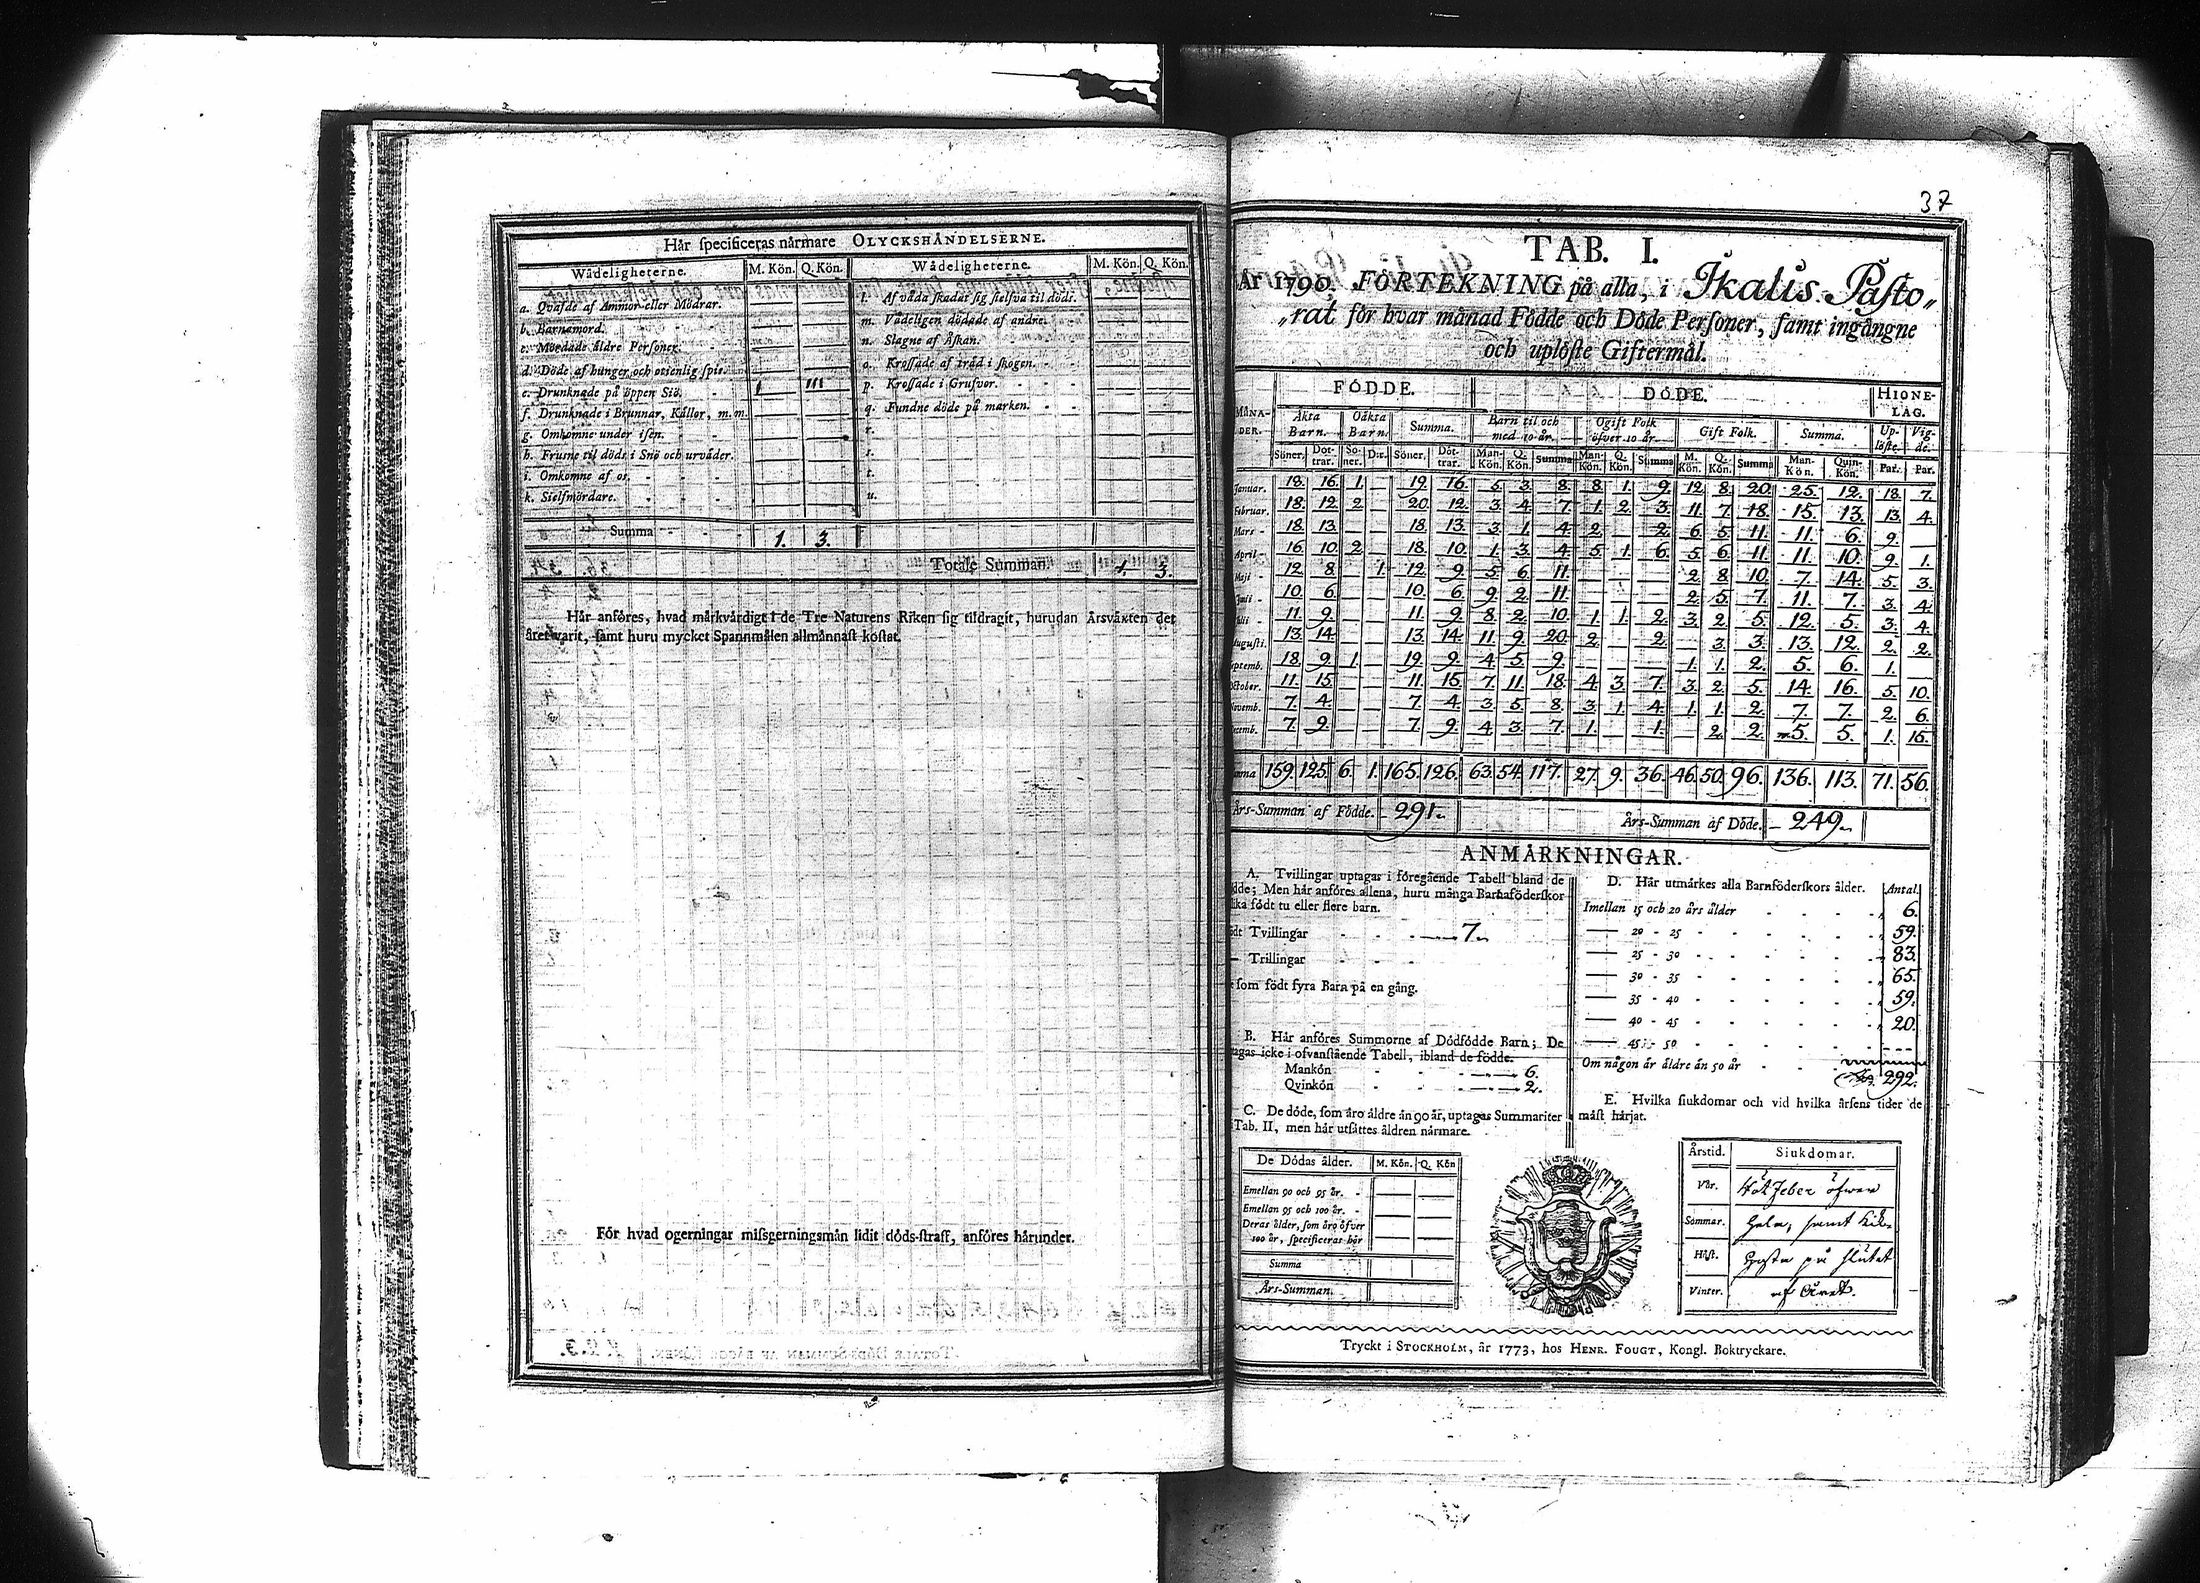 Hår specificeras nårmare OLYCKSHÅNDELSERNE.
Wådeligheterne. M. Kön. Q. Kön. Wådeligheterne. M. Kön. Q. Kön.
a. Qvafde af Ammor eller Mödrar. l. Af våda skadat sig sielfva til döds.
b. Barnamord. m. Vådeligen dödade af andre.
c. Mördade åldre Personer. n. Slagne af Åskan.
d. Döde af hunger och otienlig spis. o. Krossade af tråd i skogen.
e. Drunknade på öppen Siö. I III p. Krossade i Grufvor.
f. Drunknade i Brunnar, Kållor, m.m. q. Fundne döde på marken.
g. Omkomne under isen. r.
h. Frusne til döds i Snö och urvåder. s.
i. Omkomne af os. t.
k. Sielfmördare. u.
Summa 1. 3.
Totale Summan. 1. 3.
Hår anföres, hvad mårkvårdigt i de Tre Naturens Riken sig tildragit, hurudan Årsvåxten det
året varit, samt huru mycket Spannmålen allmånnast kostat.
För hvad ogerningar missgerningsmån lidit döds-straff, anföres hårunder.
37
TAB. I.
År 1790. FÖRTEKNING på alla, i Ikalis Pasto„
„rat för hvar månad Födde och Döde Personer, samt ingångne
och uplöste Giftermål.
FÖDDE. DÖDE. HIONE-
LAG.
MÅNA-
DER. Åkta
Barn. Oåkta
Barn. Summa. Barn til och
med 10 år. Ogift Folk
öfver 10 år. Gift Folk. Summa. Up-
löste. Vig-
de.
Söner. Döt-
trar. Sö-
ner. D:r. Söner. Döt-
trar. Man-
Kön. Q.
Kön. Summa Man-
Kön. Q.
Kön. Summa M.
Kön. Q.
Kön. Summa Man-
Kön. Quin-
Kön. Par. Par.
Januar. 18. 16. 1. — 19. 16. 5. 3. 8. 8. 1. 9. 12. 8. 20. 25. 12. 18. 7.
Februar. 18. 12. 2. — 20. 12. 3. 4. 7. 1. 2. 3. 11. 7. 18. 15. 13. 13. 4.
Mars 18. 13. — — 18. 13. 3. 1. 4. 2. — 2. 6. 5. 11. 11. 6. 9. —
April 16. 10. 2. — 18. 10. 1. 3. 4. 5. 1. 6. 5. 6. 11. 11. 10. 9. 1.
Maji 12. 8. — 1. 12. 9. 5. 6. 11. — — — 2. 8. 10. 7. 14. 5. 3.
Juni 10. 6. — — 10. 6. 9. 2. 11. — — — 2. 5. 7. 11. 7. 3. 4.
Juli 11. 9. — — 11. 9. 8. 2. 10. 1. 1. 2. 3. 2. 5. 12. 5. 3. 4.
Augusti. 13. 14. — — 13. 14. 11. 9. 20. 2. — 2. — 3. 3. 13. 12. 2. 2.
Septemb. 18. 9. 1. — 19. 9. 4. 5. 9. — — — 1. 1. 2. 5. 6. 1. —
October. 11. 15. — — 11. 15. 7. 11. 18. 4. 3. 7. 3. 2. 5. 14. 16. 5. 10.
Novemb. 7. 4. — — 7. 4. 3. 5. 8. 3. 1. 4. 1. 1. 2. 7. 7. 2. 6.
Decemb. 7. 9. — — 7. 9. 4. 3. 7. 1. — 1. — 2. 2. 5. 5. 1. 15.
Summa 159. 125. 6. 1. 165. 126. 63. 54. 117. 27. 9. 36. 46. 50. 96. 136. 113. 71. 56.
Års-Summan af Födde. 291. Års-Summan af Döde. 249.
ANMÅRKNINGAR.
A. Tvillingar uptagas i föregående Tabell bland de
födde; Men hår anföres allena, huru många Barnaföderskor
födt tu eller flere barn.
Födt Tvillingar 7.
— Trillingar
som födt fyra Barn på en gång.
B. Hår anföres Summorne af Dödfödde Barn; De
tagas icke i ofvanstående Tabell, ibland de födde.
Mankön 6.
Qvinkön 2.
C. De döde, som åro åldre ån 90 år, uptagas Summariter
i Tab. II, men hår utsåttes åldren nårmare.
De Dödas ålder. M. Kön. Q. Kön
Emellan 90 och 95 år.
Emellan 95 och 100 år.
Deras ålder, som åro öfver
100 år, specificeras hår
Summa
Års-Summan.
D. Hår utmårkes alla Barnföderskors ålder. Antal.
Imellan 15 och 20 års ålder 6.
— 20 - 25 59.
— 25 - 30 83.
— 30 - 35 65.
— 35 - 40 59.
— 40 - 45 20.
— 45 - 50
Om någon år åldre ån 50 år
292.
E. Hvilka siukdomar och vid hvilka årsens tider de
måst hårjat.
Årstid. Siukdomar.
Vår. Röt feber öfwer
Sommar. hela, samt kik-
Höst. hosta på slutet
Vinter. af Året.
Tryckt i STOCKHOLM, år 1773, hos HENR. FOUGT, Kongl. Boktryckare.